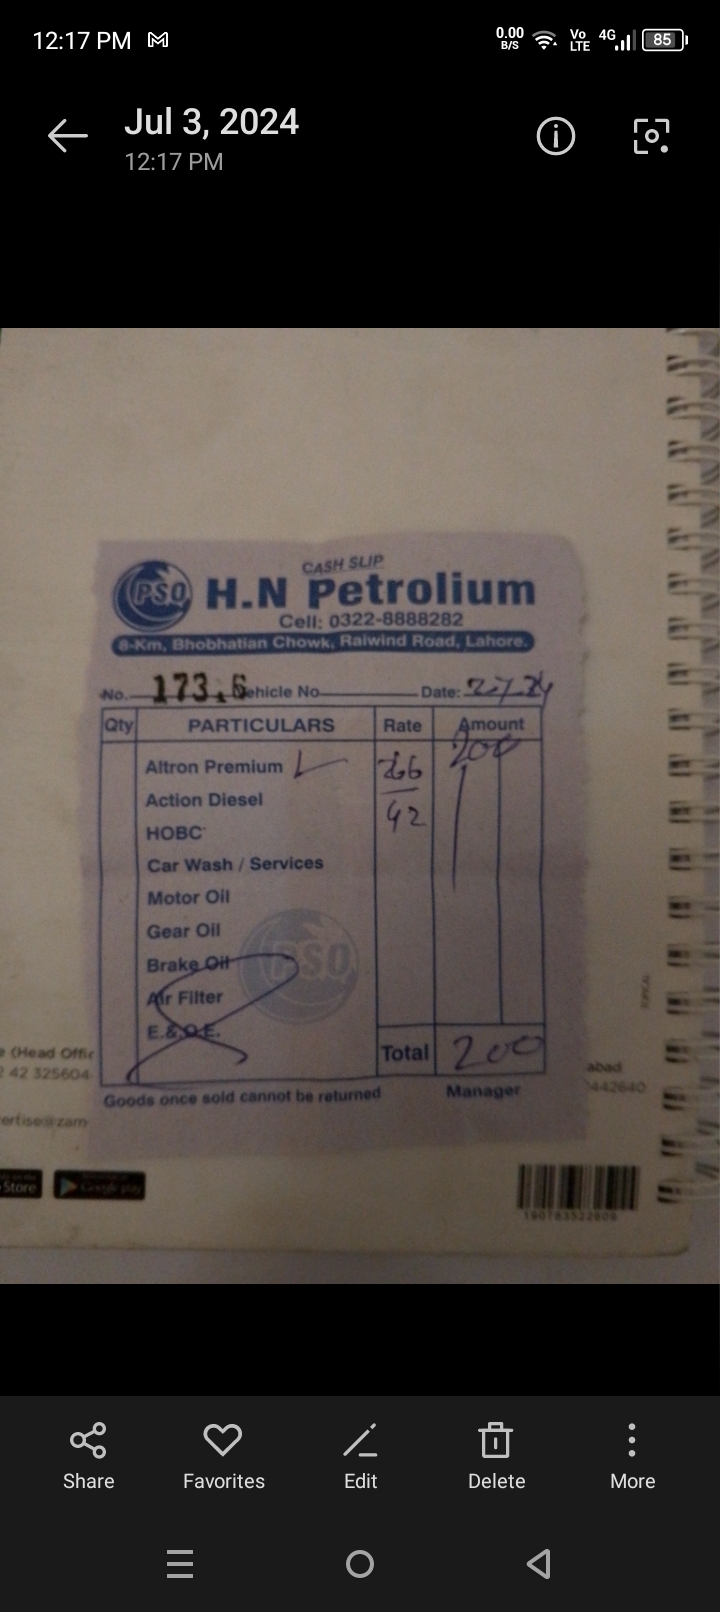 12:17 PM
0.00 B/S Vo LTE 4G 85
Jul 3, 2024
12:17 PM
CASH SLIP
PSO H.N Petrolium
Cell: 0322-8888282
8-Km, Bhobhatian Chowk, Raiwind Road, Lahore.
No. 173.6 Vehicle No Date: 2-7-24
Qty PARTICULARS Rate Amount
200
Altron Premium 266
Action Diesel 42
HOBC
Car Wash / Services
Motor Oil
Gear Oil
PSO
Brake Oil
Air Filter
E.&.O.E.
Total 200
Goods once sold cannot be returned Manager
e (Head Offic
2 42 325604
abad
0442640
ertise@zam
Store Google play
Share Favorites Edit Delete More